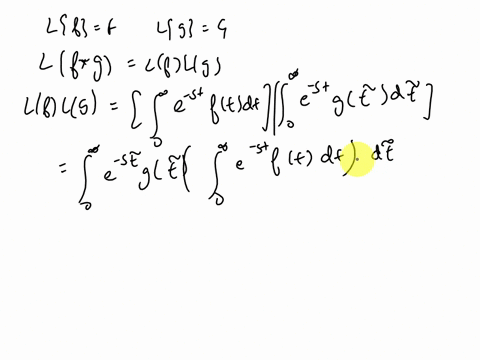 L{f}=F L{g}=G
L(f*g) = L(f)L(g)
L(f)L(g) = [∫₀^∞ e^{-st} f(t)dt][∫₀^∞ e^{-st} g(t̃)dt̃]
= ∫₀^∞ e^{-st̃} g(t̃)(∫₀^∞ e^{-st} f(t) dt). dt̃